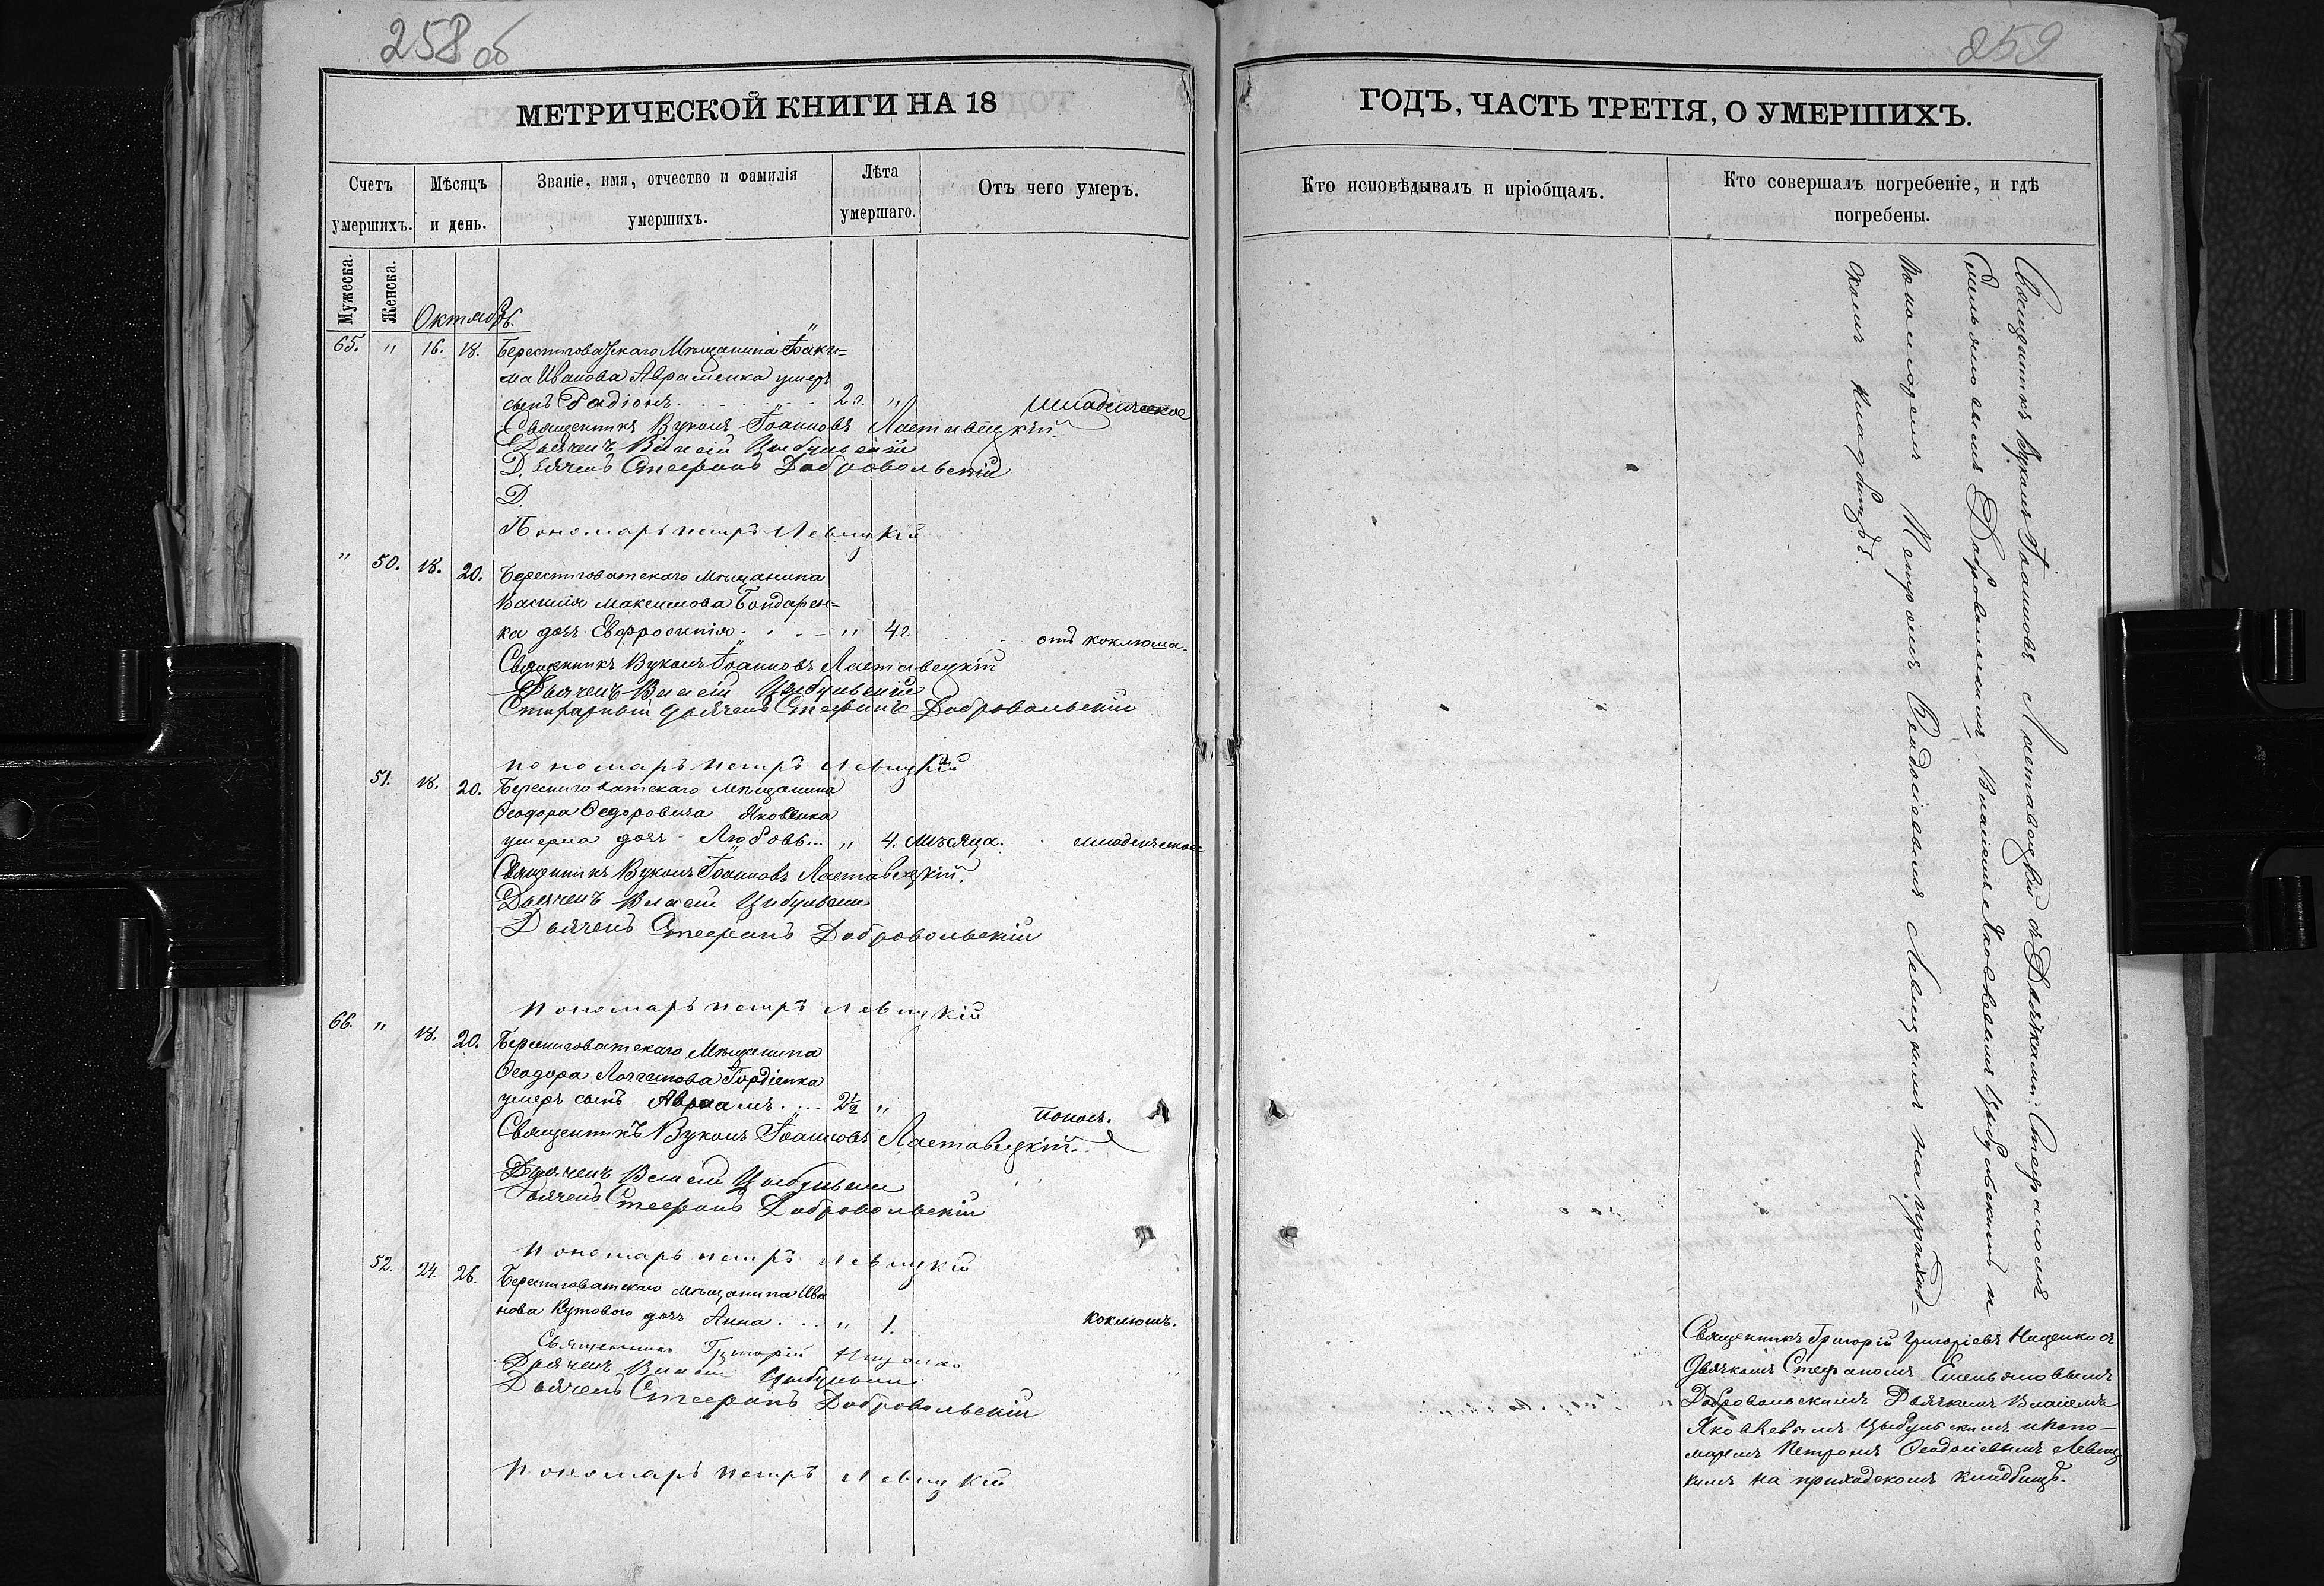 258 об
МЕТРИЧЕСКОЙ КНИГИ НА 18
Счетъ умершихъ.
Мѣсяцъ и день.
Званіе, имя, отчество и фамилія умершихъ.
Лѣта умершаго.
Отъ чего умеръ.
Мужеска.
Женска.
Октябрь.
65. " 16. 18. Берестоватскаго Мѣщанина Іоаки=
ма Иванова Авраменка умеръ
сынъ Радіонъ 2 г. " младенческое
Священникъ Вуколъ Іоанновъ Ластавецкій.
Дьячекъ Власій Цыбульскій
Дьячекъ Стефанъ Добровольскій
Д.
Пономарь Петръ Левицкій
" 50. 18. 20. Берестоватскаго Мѣщанина
Василія Максимова Бондарен=
ка дочь Евфросинія " 4 г. отъ коклюша.
Священникъ Вуколъ Іоанновъ Ластавецкій
Дьячекъ Власій Цыбульскій
дьячекъ Стефанъ Добровольскій
пономарь Петръ Левицкій
51. 18. 20. Берестоватскаго Мѣщанина
Ѳеодора Ѳедоровича Яковенка
умерла дочь Любовь... " 4. мѣсяца. младенческое
Священникъ Вуколъ Іоанновъ Ластавецкій.
Дьячекъ Власій Цибульскій
Дьячекъ Стефанъ Добровольскій
Пономарь Петръ Левицкій
66. " 18. 20. Берестоватскаго Мѣщанина
Ѳеодора Логгинова Гордіенка
умеръ сынъ Авраамъ 2½ " поносъ.
Священникъ Вуколъ Іоанновъ Ластавецкій.
Дьячекъ Власій Цыбульскій
Дьячекъ Стефанъ Добровольскій
Пономарь Петръ Левицкій
52. 24. 26. Берестоватскаго мѣщанина Ива
нова Кутового дочь Анна " 1. коклюшъ.
Священникъ Григорій Ниценко
Дьячекъ Власій Цыбульскій
Дьячекъ Стефанъ Добровольскій
Пономарь Петръ Левицкій
259
ГОДЪ, ЧАСТЬ ТРЕТІЯ, О УМЕРШИХЪ.
Кто исповѣдывалъ и пріобщалъ.
Кто совершалъ погребеніе, и гдѣ погребены.
Священникъ Вуколъ Іоанновъ Ластавецкій съ Дьячками: Стефаномъ
Емельяновымъ Добровольскимъ, Власіемъ Яковлевымъ Цыбульскимъ и
Пономаремъ Петромъ Ѳеодосіевымъ Левицкимъ на приход=
скомъ кладбищѣ.
Священникъ Григорій Григоріевъ Ниценко съ
Дьячкомъ Стефаномъ Емельяновымъ
Добровольскимъ Дьячкомъ Власіемъ
Яковлевымъ Цыбульскимъ и поно-
маремъ Петромъ Ѳеодосіевымъ Левиц
кимъ на приходскомъ кладбищѣ.